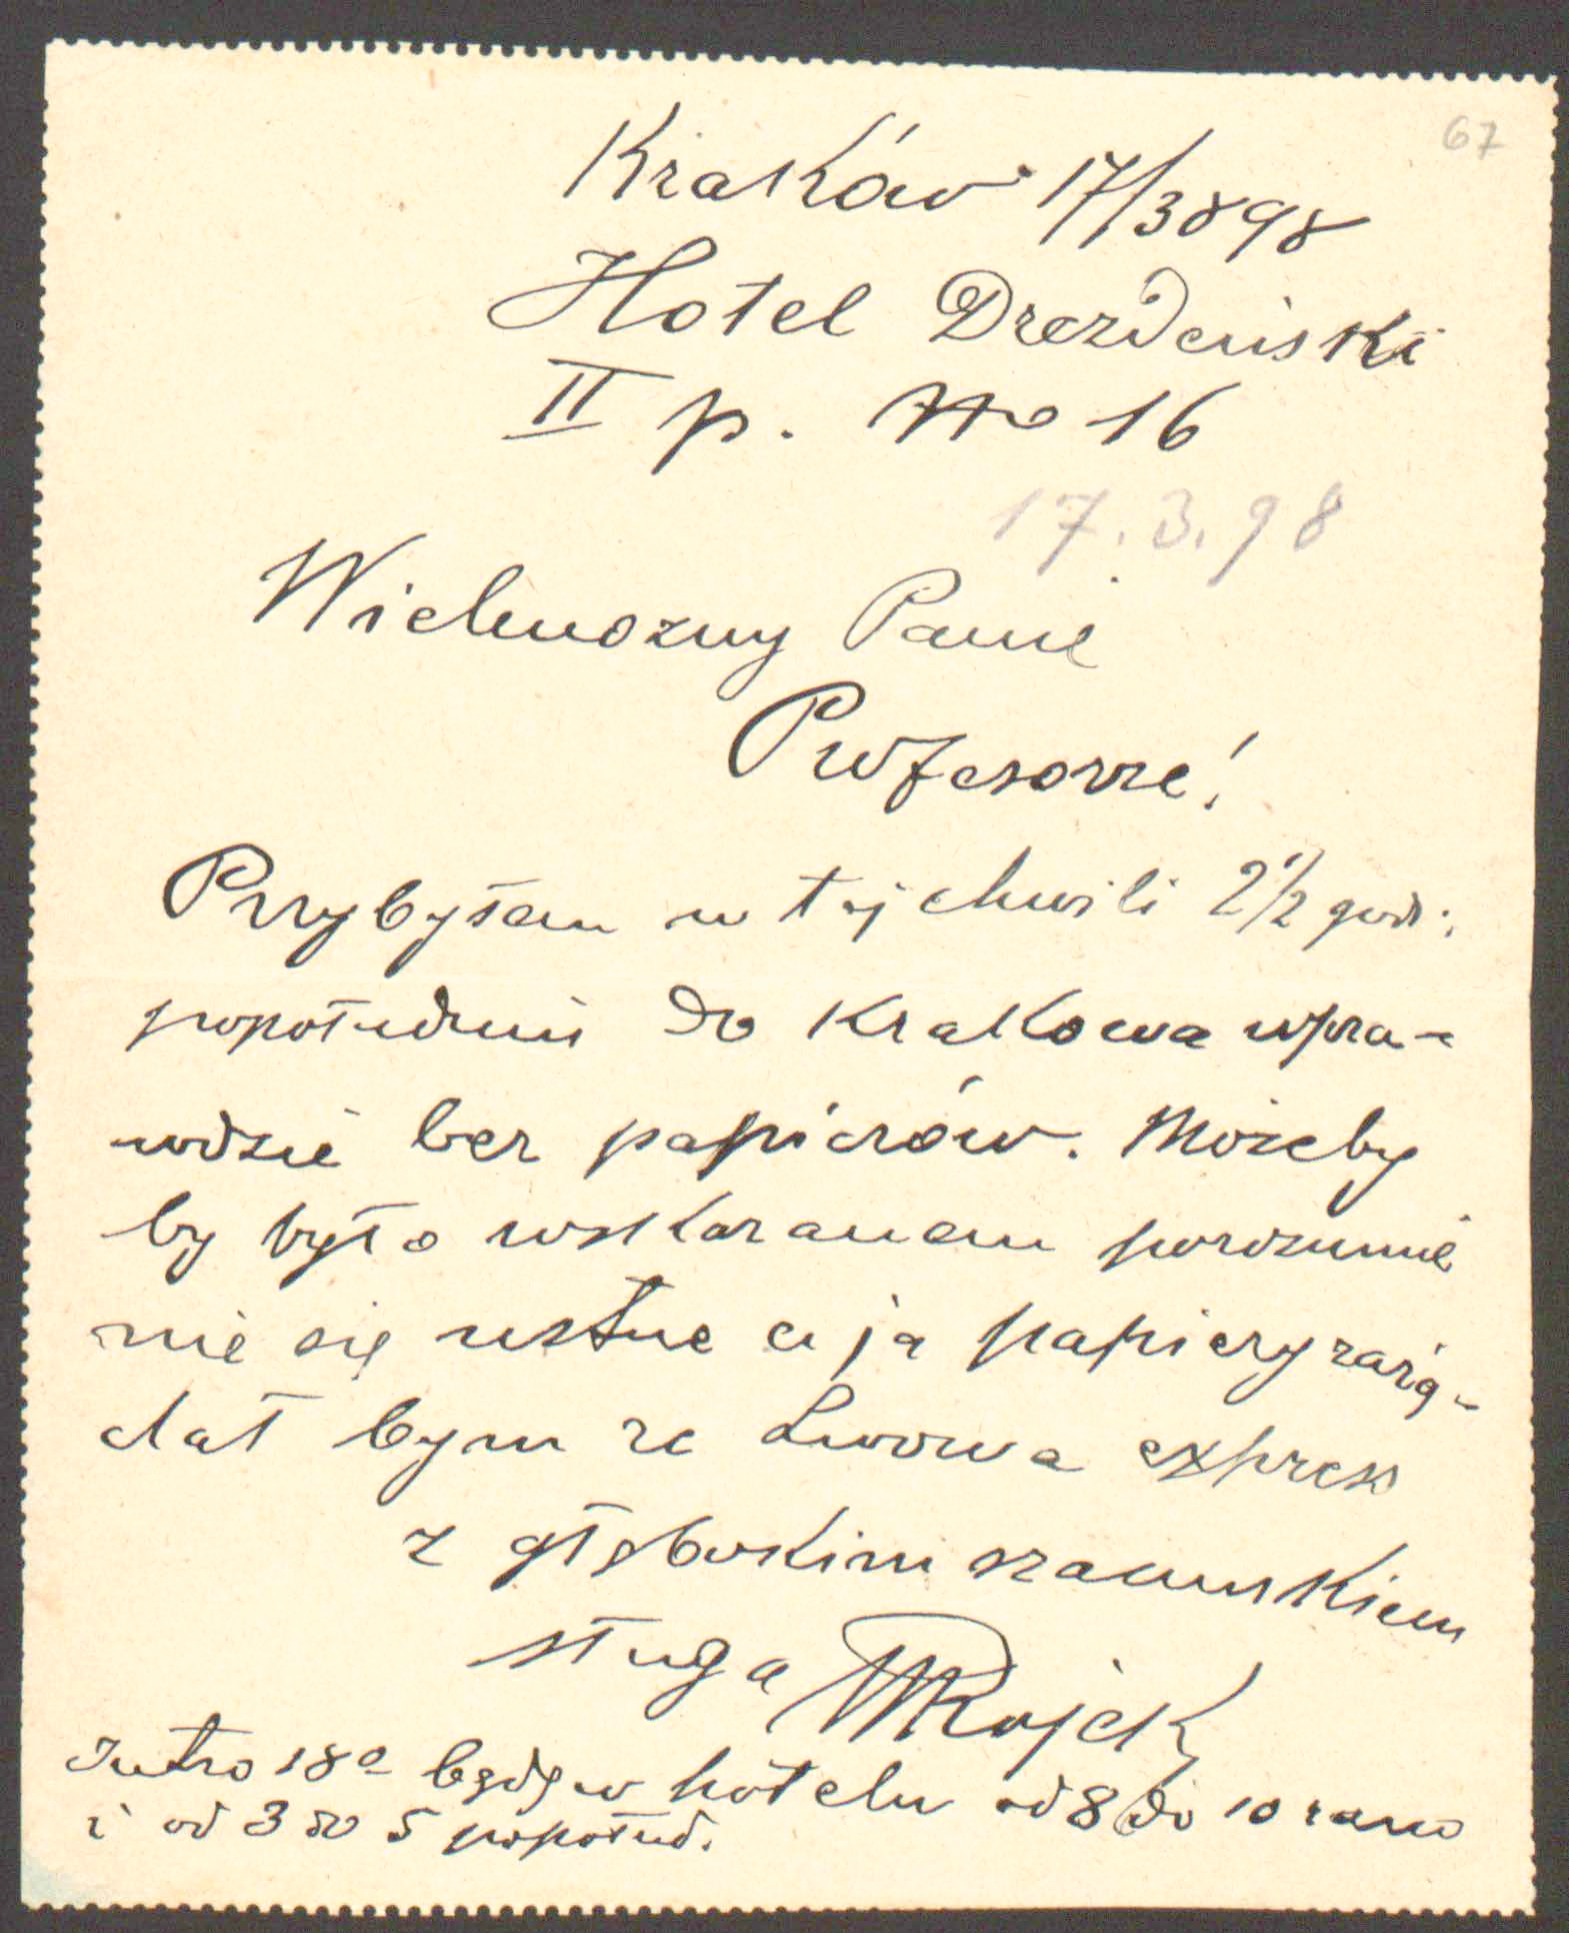 67
Kraków 17/3 898
Hotel Drezdeński
II p. No 16
17.3.98
Wielmożny Panie
Profesorze!
Przybyłem w tej chwili 2 1/2 godz:
popołudniu do Krakowa wpra-
wdzie bez papierów. Możeby
by było wskazanem porozumie
nie się ustne a ja papiery zażą-
dał bym ze Lwowa express
z głębokim szacunkiem
sługa WRojek
Jutro 18o będę w hotelu od 8 do 10 rano
i od 3 do 5 popołud.